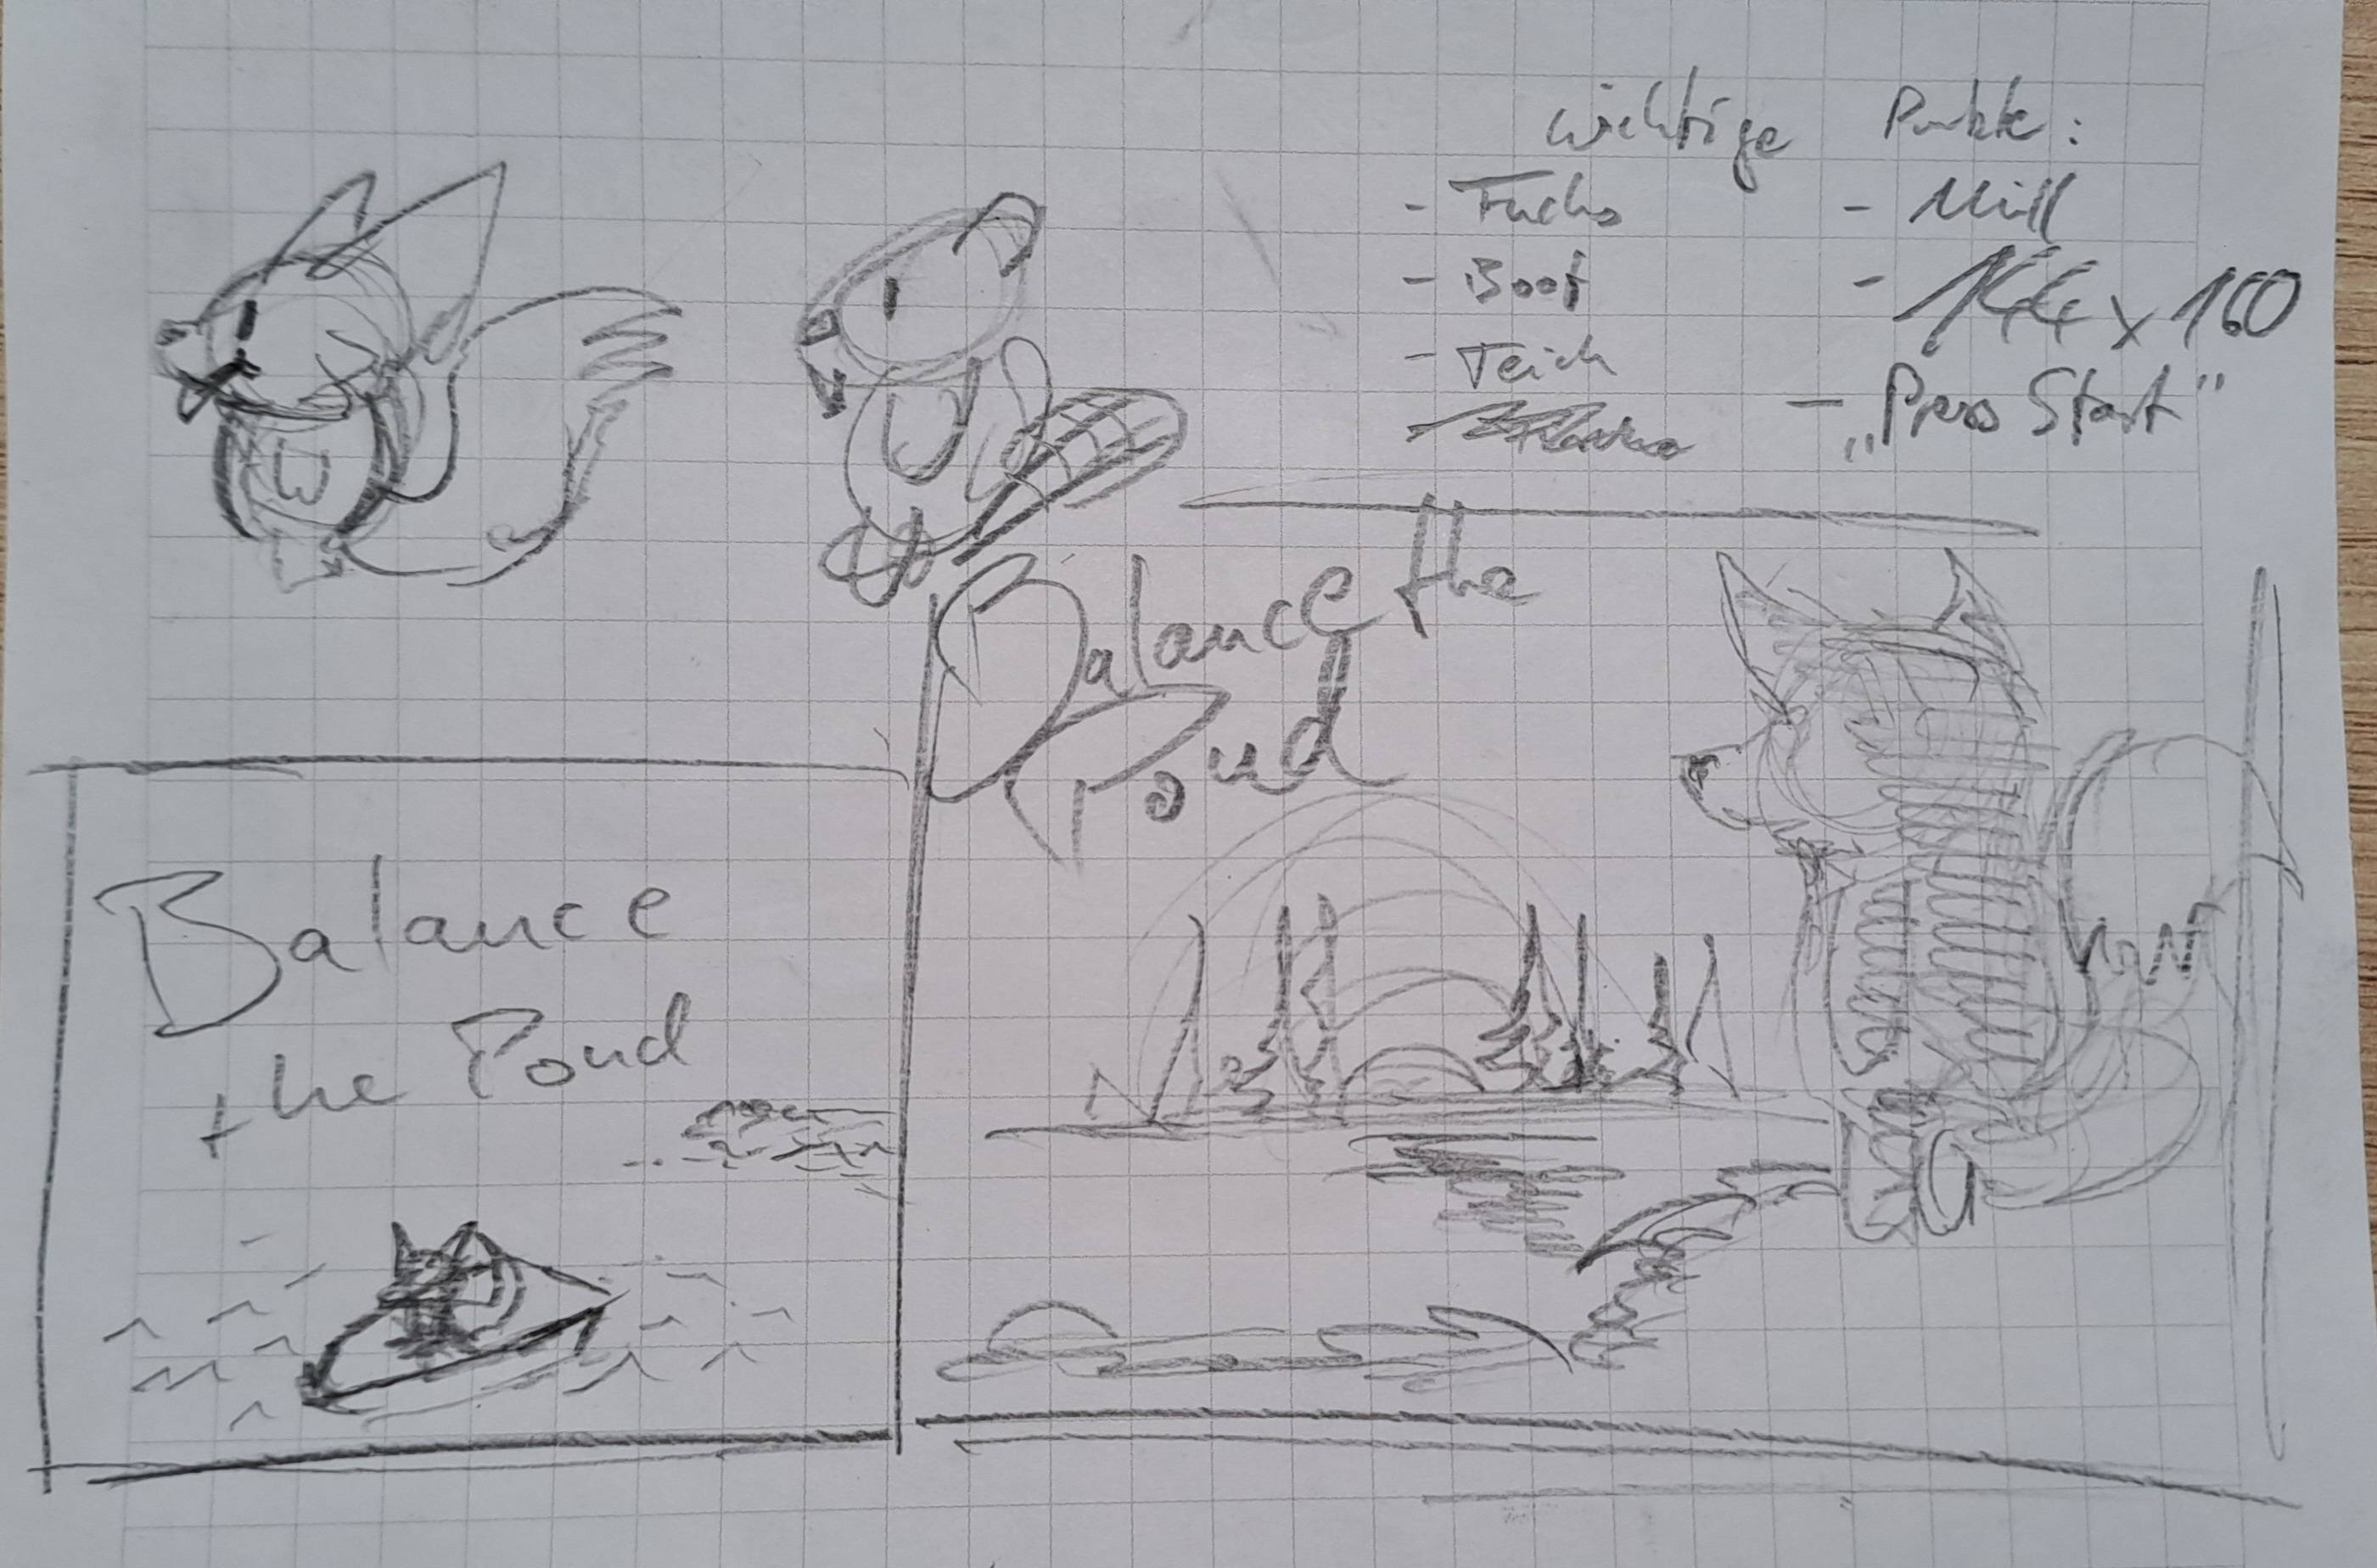 wichtige Punkte:
- Fuchs
- Boot
- Teich
- Müll
- 144 x 160
- „Press Start"
Balance the
Pond
Balance
the Pond